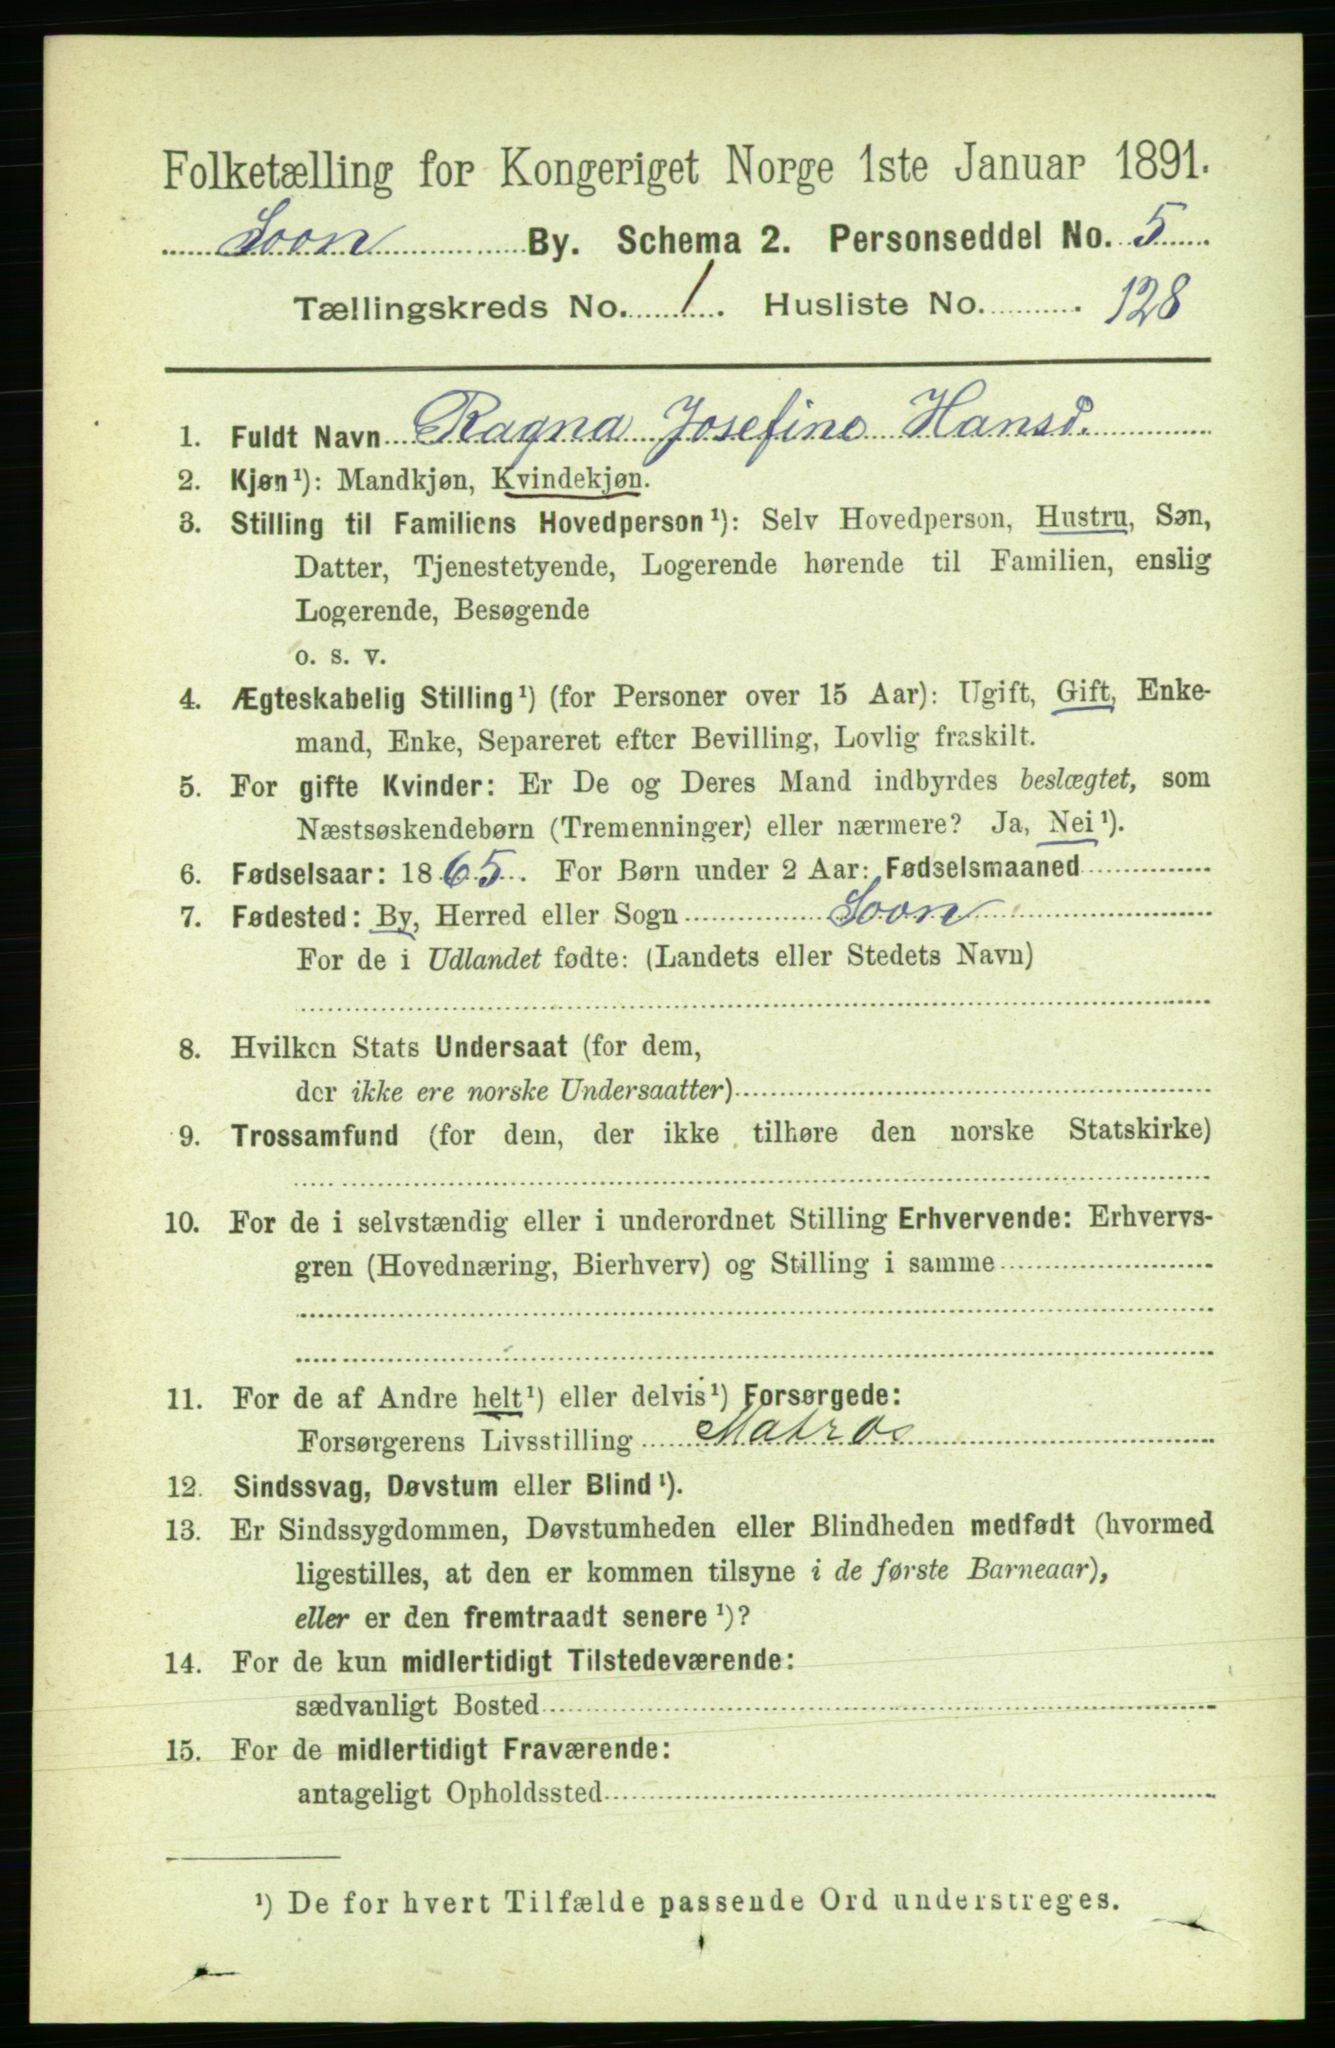 Folketælling for Kongeriget Norge 1ste Januar 1891.
Soon By. Schema 2. Personseddel No. 5
Tællingskreds No. 1. Husliste No. 128
1. Fuldt Navn Ragna Josefine Hansd.
2. Kjøn¹): Mandkjøn, Kvindekjøn.
3. Stilling til Familiens Hovedperson¹): Selv Hovedperson, Hustru, Søn,
Datter, Tjenestetyende, Logerende hørende til Familien, enslig
Logerende, Besøgende
o. s. v.
4. Ægteskabelig Stilling¹) (for Personer over 15 Aar): Ugift, Gift, Enke-
mand, Enke, Separeret efter Bevilling, Lovlig fraskilt.
5. For gifte Kvinder: Er De og Deres Mand indbyrdes beslægtet, som
Næstsøskendebørn (Tremenninger) eller nærmere? Ja, Nei¹).
6. Fødselsaar: 1865. For Børn under 2 Aar: Fødselsmaaned
7. Fødested: By, Herred eller Sogn Soon
For de i Udlandet fødte: (Landets eller Stedets Navn)
8. Hvilken Stats Undersaat (for dem,
der ikke ere norske Undersaatter)
9. Trossamfund (for dem, der ikke tilhøre den norske Statskirke)
10. For de i selvstændig eller i underordnet Stilling Erhvervende: Erhvervs-
gren (Hovednæring, Bierhverv) og Stilling i samme
11. For de af Andre helt¹) eller delvis¹) Forsørgede:
Forsørgerens Livsstilling Matros
12. Sindssvag, Døvstum eller Blind¹).
13. Er Sindssygdommen, Døvstumheden eller Blindheden medfødt (hvormed
ligestilles, at den er kommen tilsyne i de første Barneaar),
eller er den fremtraadt senere¹)?
14. For de kun midlertidigt Tilstedeværende:
sædvanligt Bosted
15. For de midlertidigt Fraværende:
antageligt Opholdssted
¹) De for hvert Tilfælde passende Ord understreges.